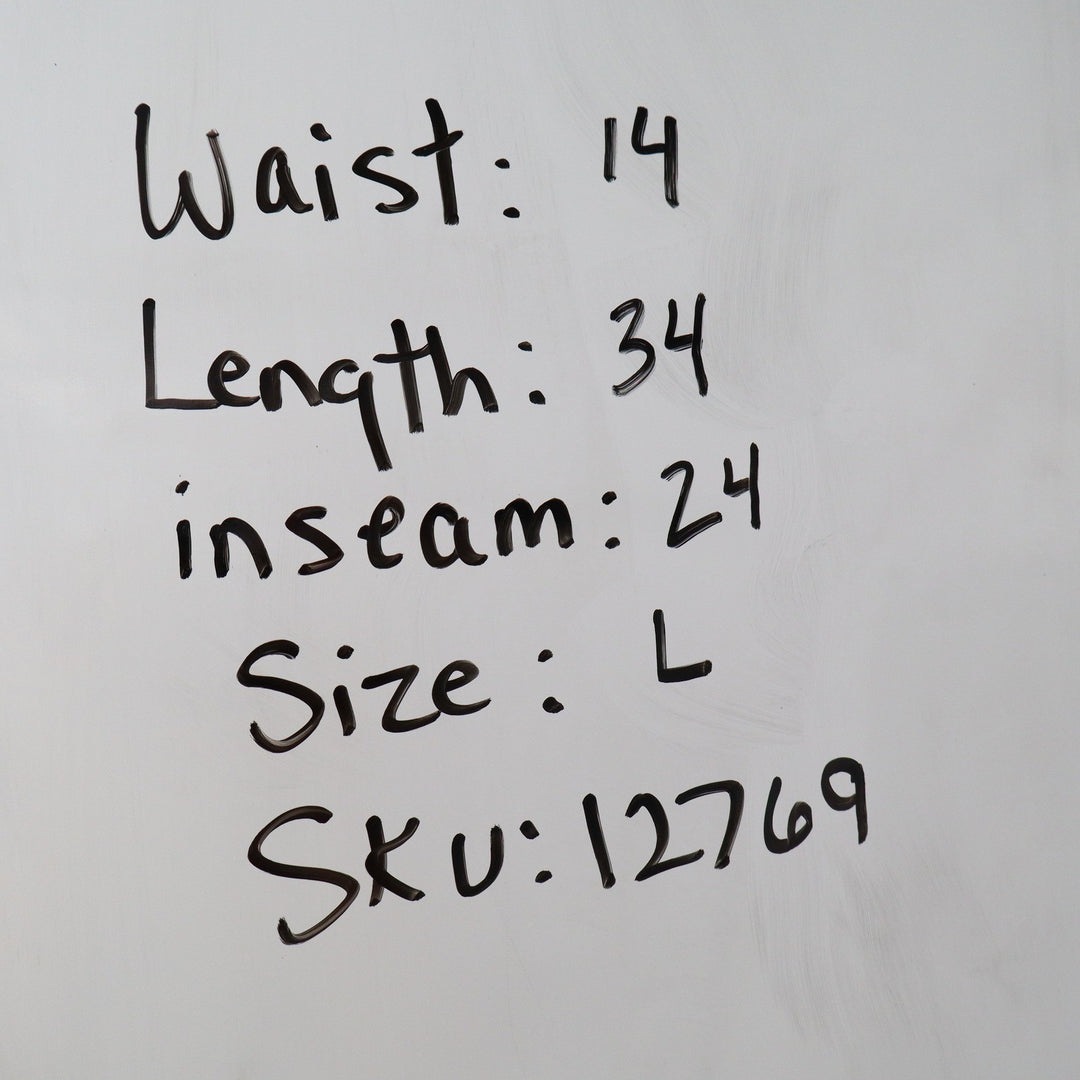 Waist: 14
Length: 34
inseam: 24
Size: L
SKU: 12769